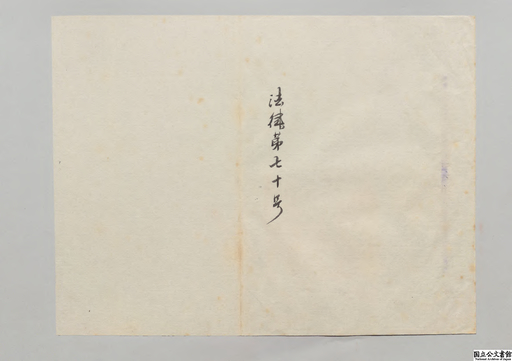 法律第七十号
国立公文書館
National Archives of Japan